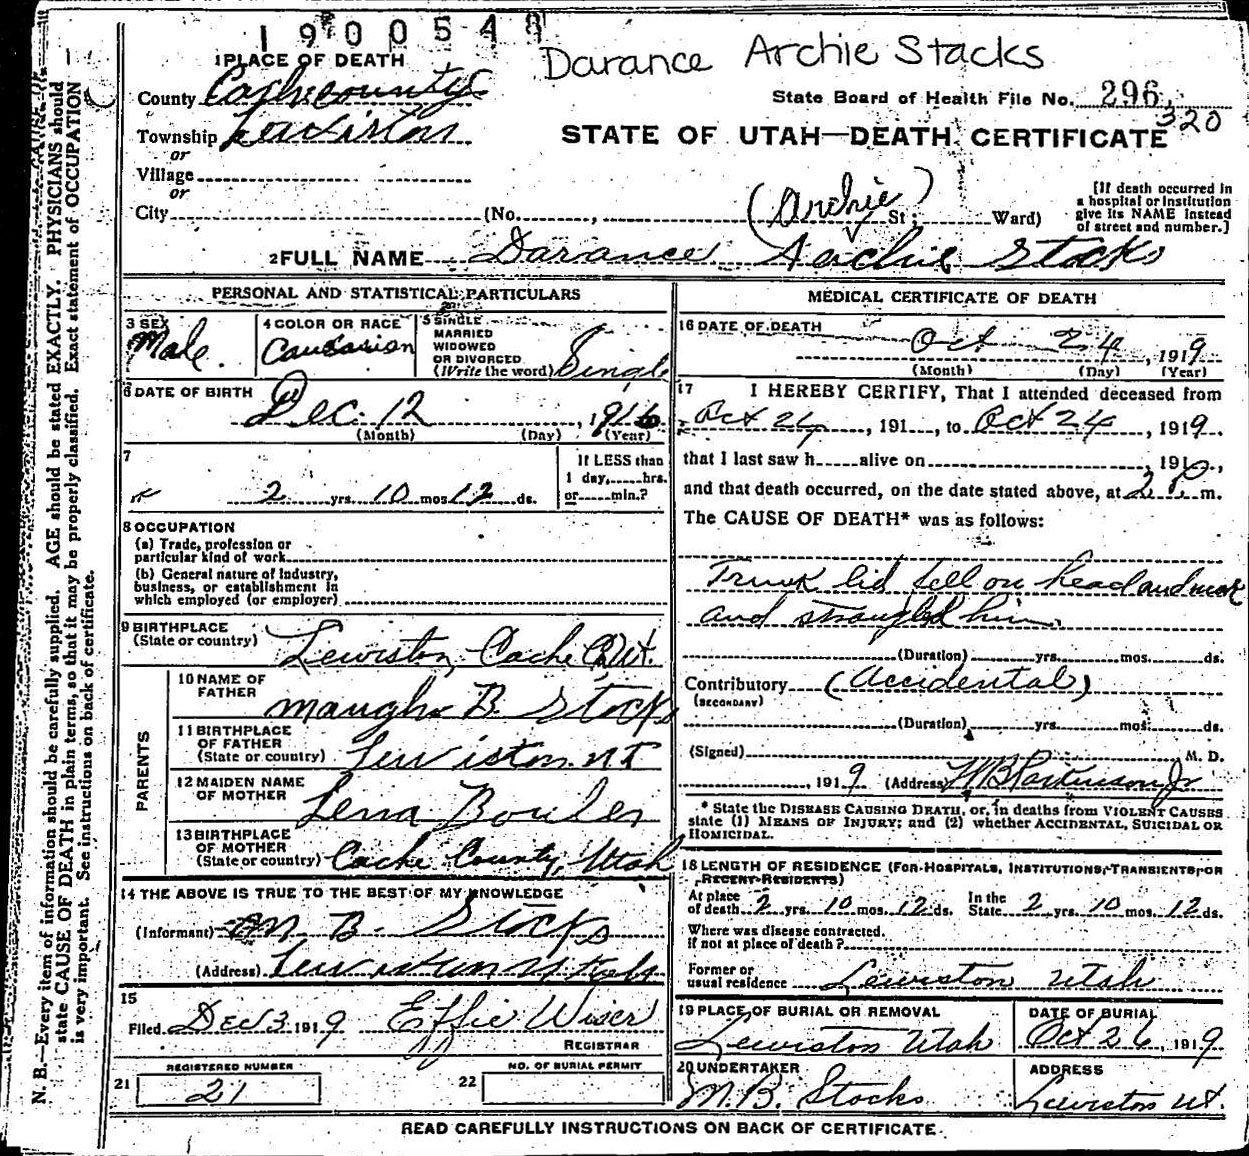 1900548
Darance Archie Stacks
1 PLACE OF DEATH
County Cache county
State Board of Health File No. 296
320
Township Lewiston
STATE OF UTAH—DEATH CERTIFICATE
or
Village
or
City (No. , St ; Ward)
(Archie)
[If death occurred in
a hospital or institution
give its NAME instead
of street and number.]
2 FULL NAME Darance Archie Stocks
PERSONAL AND STATISTICAL PARTICULARS
3 SEX
Male
4 COLOR OR RACE
Caucasian
5 SINGLE
MARRIED
WIDOWED
OR DIVORCED
(Write the word) Single
6 DATE OF BIRTH
Dec. 12, 1916
(Month) (Day) (Year)
7
2 yrs. 10 mos. 12 ds.
If LESS than
1 day, hrs.
or min.?
8 OCCUPATION
(a) Trade, profession or
particular kind of work
(b) General nature of industry,
business, or establishment in
which employed (or employer)
9 BIRTHPLACE
(State or country) Lewiston Cache Co Ut.
PARENTS
10 NAME OF
FATHER
Maughn B. Stocks
11 BIRTHPLACE
OF FATHER
(State or country) Lewiston UT
12 MAIDEN NAME
OF MOTHER
Lena
13 BIRTHPLACE
OF MOTHER
(State or country) Cache County, Utah
14 THE ABOVE IS TRUE TO THE BEST OF MY KNOWLEDGE
(Informant) M. B. Stocks
(Address) Lewiston Utah
15
Filed Dec 3 1919 Effie Wiser
REGISTRAR
REGISTERED NUMBER
21 21
NO. OF BURIAL PERMIT
22
MEDICAL CERTIFICATE OF DEATH
16 DATE OF DEATH
Oct 24, 1919
(Month) (Day) (Year)
17 I HEREBY CERTIFY, That I attended deceased from
Oct 24, 191 , to Oct 24, 1919.
that I last saw h alive on , 191 ,
and that death occurred, on the date stated above, at 2 P. m.
The CAUSE OF DEATH* was as follows:
Trunk lid fell on head and neck
and strangled him.
(Duration) yrs. mos. ds.
Contributory (Accidental)
(SECONDARY)
(Duration) yrs. mos. ds.
(Signed) M. D.
, 1919 (Address) W B Parkinson Jr
* State the DISEASE CAUSING DEATH, or, in deaths from VIOLENT CAUSES
state (1) MEANS OF INJURY; and (2) whether ACCIDENTAL, SUICIDAL OR
HOMICIDAL.
18 LENGTH OF RESIDENCE (FOR HOSPITALS, INSTITUTIONS, TRANSIENTS, OR
RECENT RESIDENTS)
At place
of death 2 yrs. 10 mos. 12 ds.
In the
State 2 yrs. 10 mos. 12 ds.
Where was disease contracted.
If not at place of death?
Former or
usual residence Lewiston Utah
19 PLACE OF BURIAL OR REMOVAL
Lewiston Utah
DATE OF BURIAL
Oct 26, 1919
20 UNDERTAKER
M. B. Stocks
ADDRESS
Lewiston Ut.
READ CAREFULLY INSTRUCTIONS ON BACK OF CERTIFICATE.
N. B.—Every item of information should be carefully supplied. AGE should be stated EXACTLY. PHYSICIANS should
state CAUSE OF DEATH in plain terms, so that it may be properly classified. Exact statement of OCCUPATION
is very important. See instructions on back of certificate.